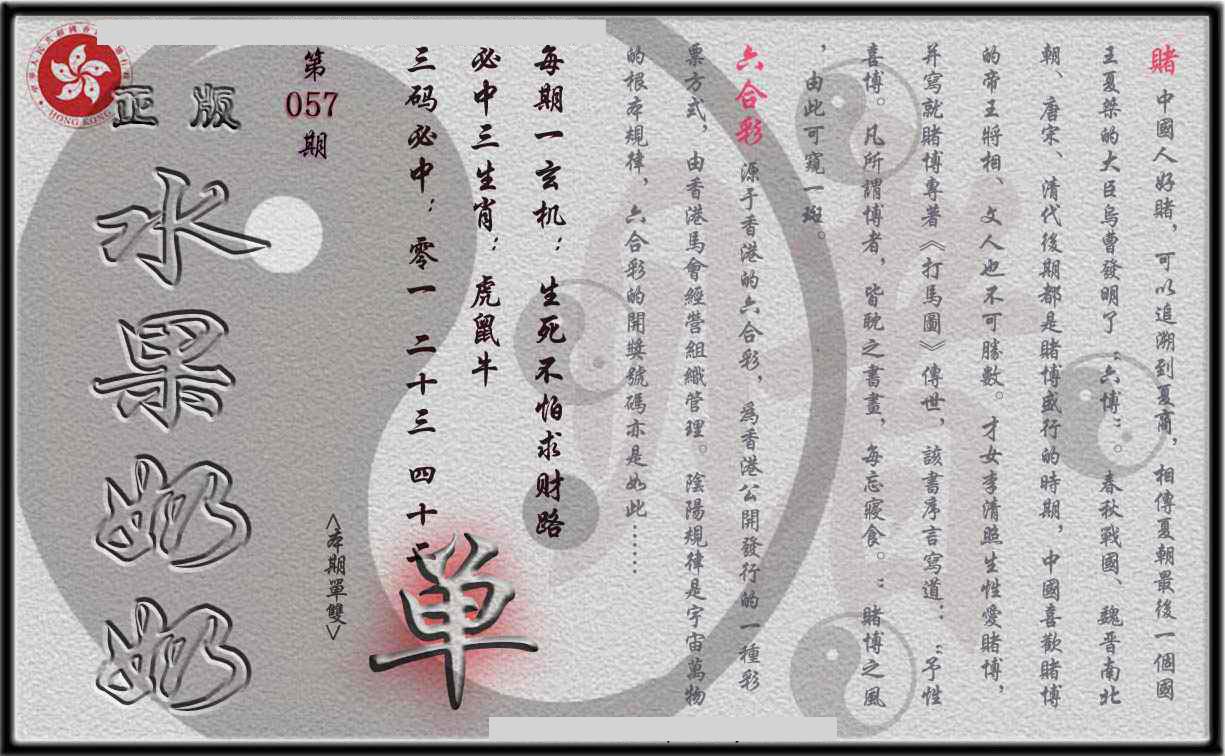 賭 中國人好賭，可以追溯到夏商，相傳夏朝最後一個國
王夏桀的大臣烏曹發明了“六博”。春秋戰國、魏晋南北
朝、唐宋、清代後期都是賭博盛行的時期，中國喜歡賭博
的帝王將相、文人也不可勝數。才女李清照生性愛賭博，
并寫就賭博專著《打馬圖》傳世，該書序言寫道：“予性
喜博。凡所謂博者，皆耽之書晝，每忘寢食。”賭博之風
，由此可窺一斑。
六合彩 源于香港的六合彩，為香港公開發行的一種彩
票方式，由香港馬會經營組織管理。陰陽規律是宇宙萬物
的根本規律，六合彩的開獎號碼亦是如此……
每期一玄机：生死不怕求财路
必中三生肖：虎鼠牛
三码必中：零一 二十三 四十七
单
<本期單雙>
第
057
期
正版
水果奶奶
HONG KONG